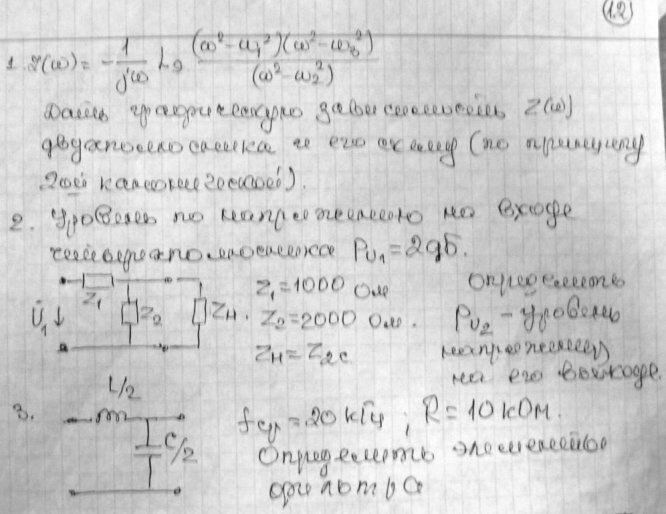 (12)
1. Z(ω) = - 1/jω L∞ (ω²-ω₁²)(ω²-ω₃²)/(ω²-ω₂²)
Дать графическую зависимость Z(ω)
двухполюсника и его схему (по принципу
2ой канонической).
2. Уровень по напряжению на входе
четырехполюсника Pu₁=2дб.
Z₁ Z₂ Zн. U̇₁↓
Z₁=1000 Ом
Z₂=2000 Ом.
Zн=Z₂c
Определить
Pu₂ - уровень
напряжения
на его выходе.
3. L/2 C/2
fср=20 кГц; R=10 кОм.
Определить элементы
фильтра